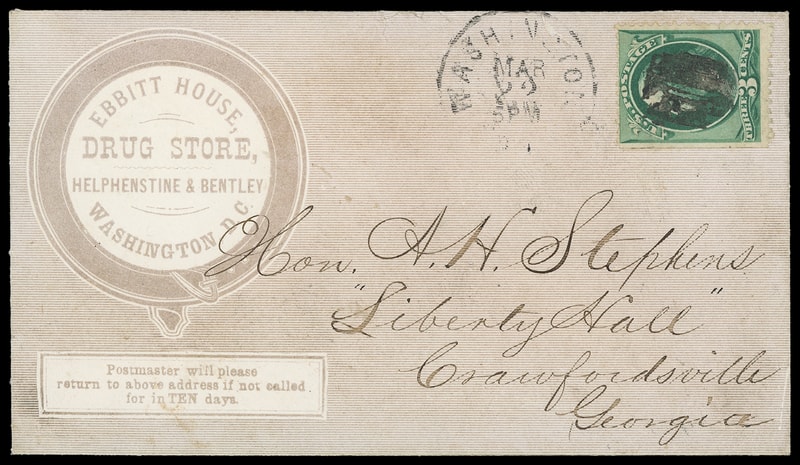 EBBITT HOUSE,
DRUG STORE,
HELPHENSTINE & BENTLEY
WASHINGTON D.C.
Postmaster will please
return to above address if not called
for in TEN days.
MAR
PM
POSTAGE
Hon. A. H. Stephens
"Liberty Hall"
Crawfordsville
Georgia